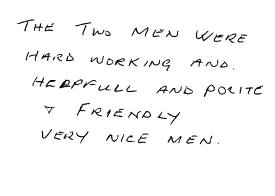 THE TWO MEN WERE
HARD WORKING AND.
HELPFULL AND POLITE
& FRIENDLY
VERY NICE MEN.